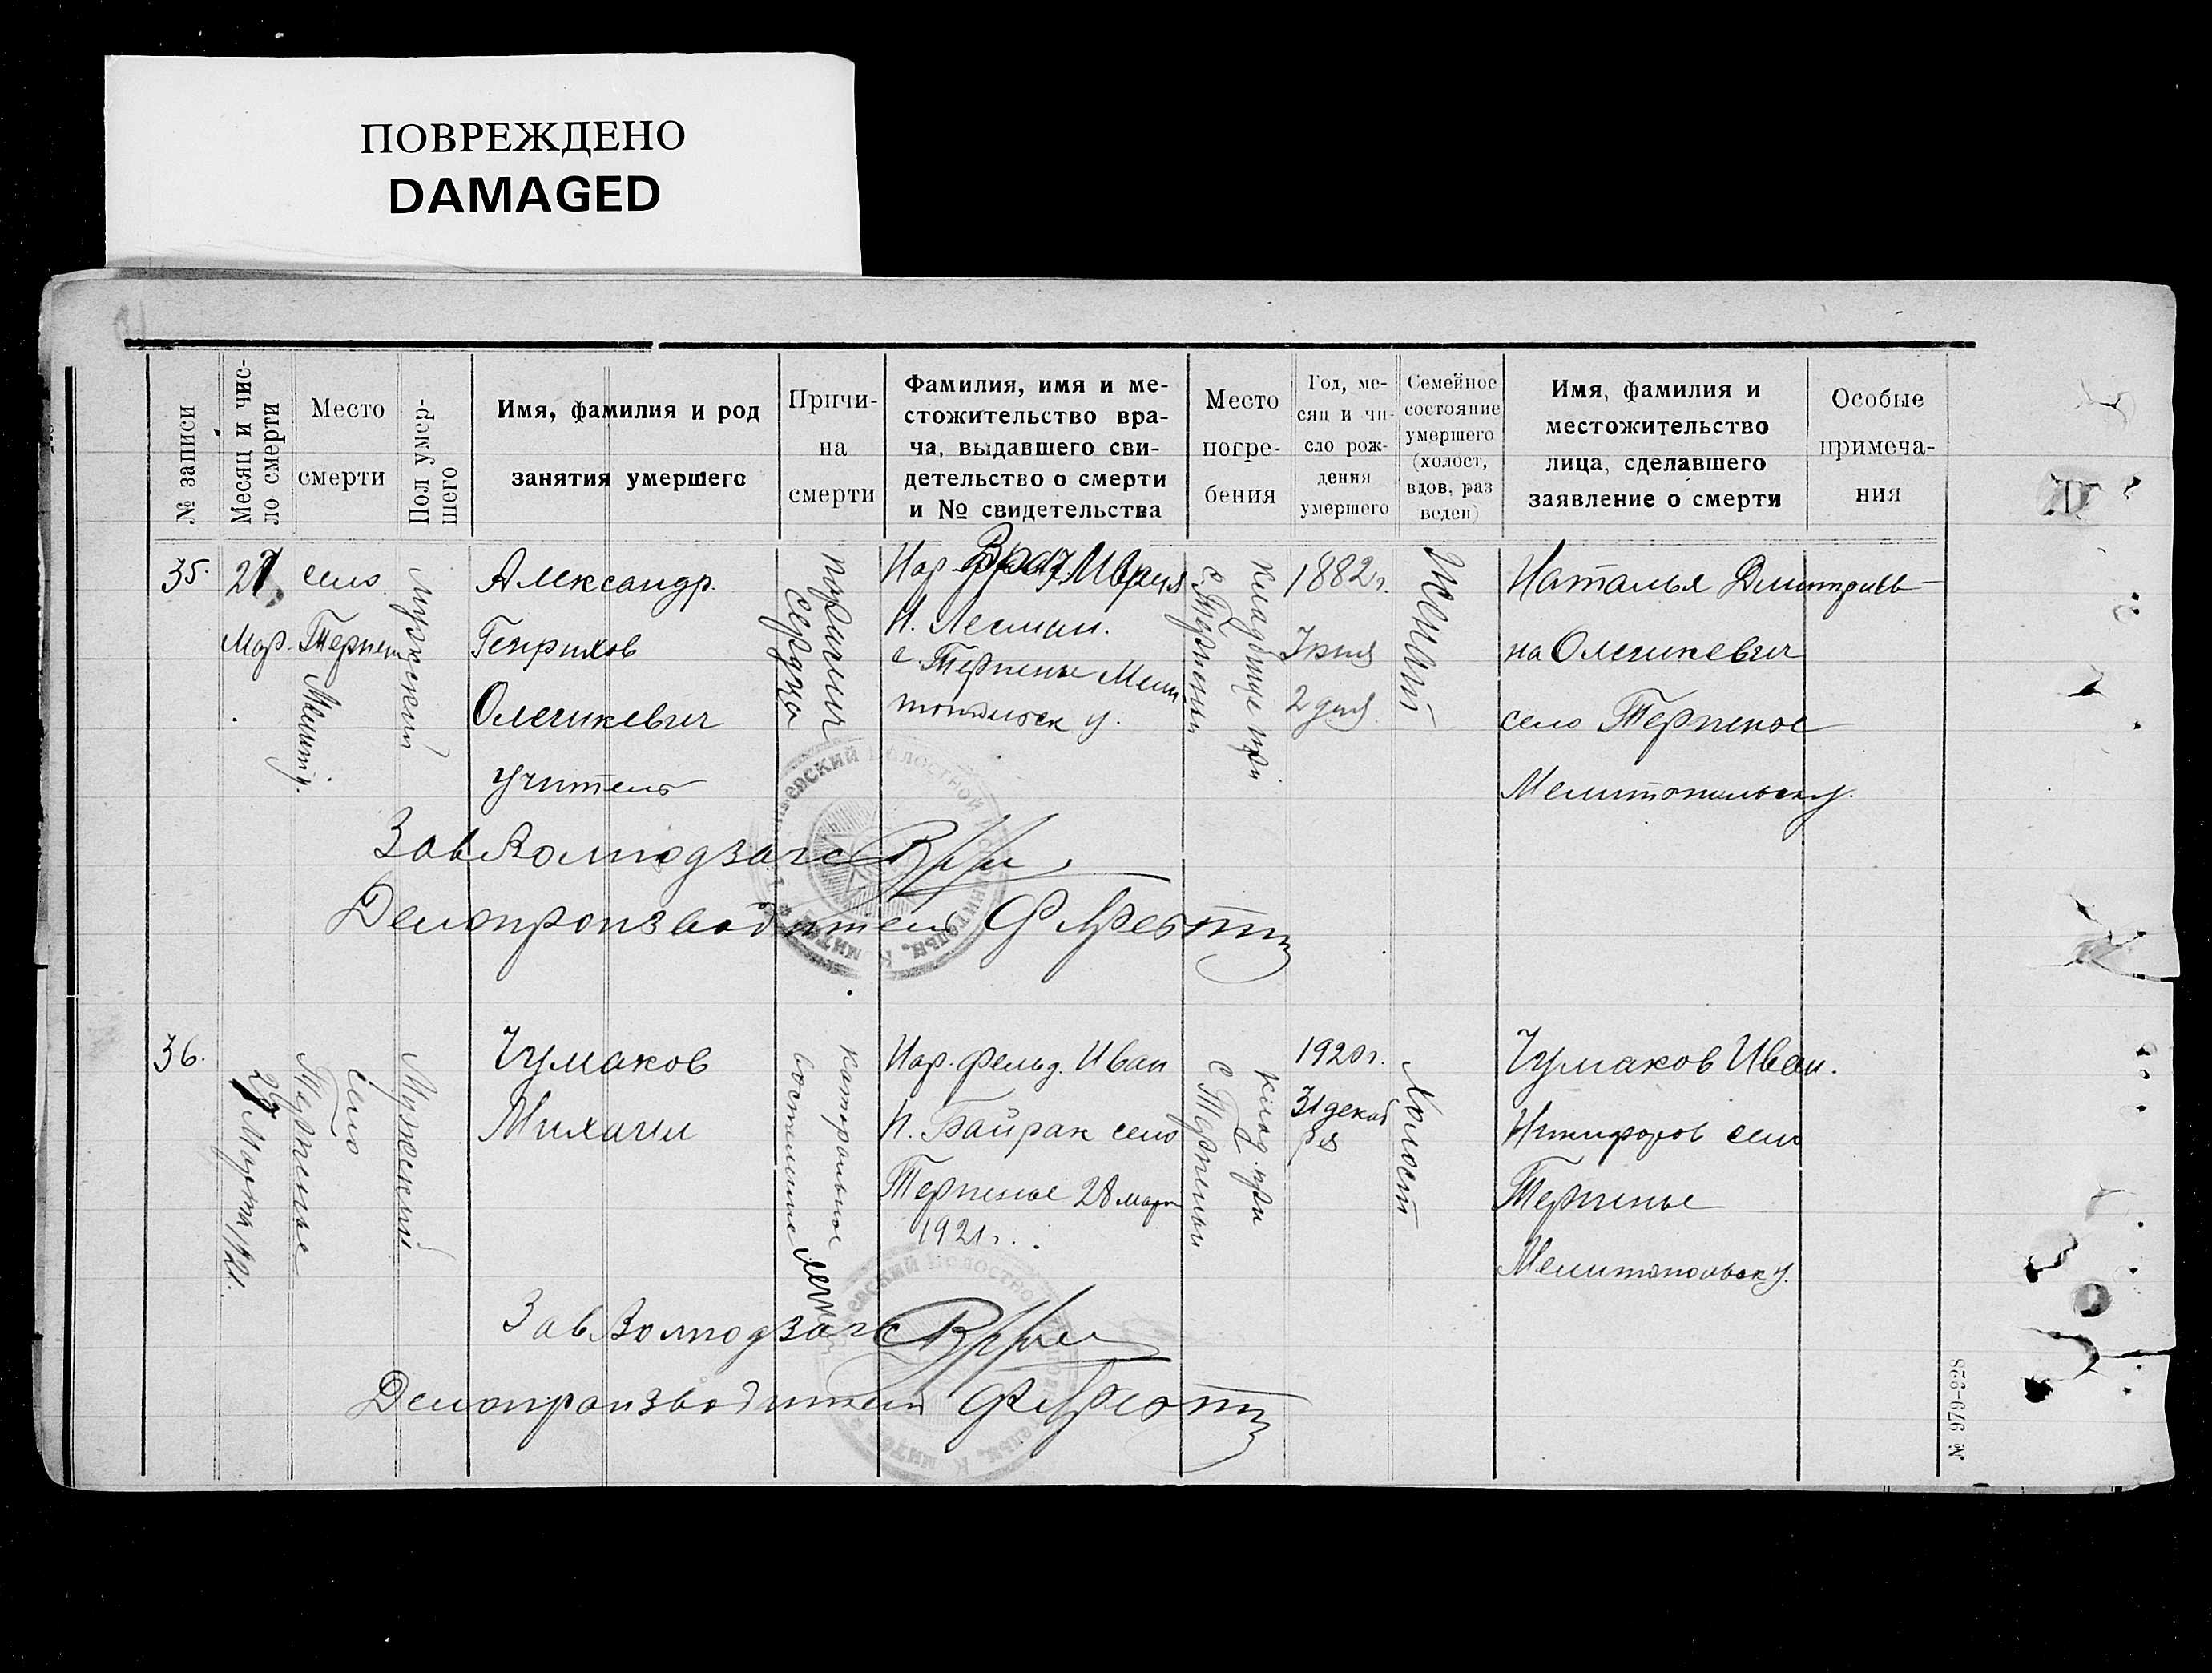 ПОВРЕЖДЕНО
DAMAGED
№ записи
Месяц и чис-
ло смерти
Место
смерти
Пол умер-
шего
Имя, фамилия и род
занятия умершего
Причи-
на
смерти
Фамилия, имя и ме-
стожительство вра-
ча, выдавшего сви-
детельство о смерти
и № свидетельства
Место
погре-
бения
Год, ме-
сяц и чи-
сло рож-
дения
умершего
Семейное
состояние
умершего
(холост,
вдов, раз
веден)
Имя, фамилия и
местожительство
лица, сделавшего
заявление о смерти
Особые
примеча-
ния
35.
27
Мар.
село
Терпен
Мелит у.
Мужский
Александр
Генрихов
Олешкевич
учитель
паралич
сердца
Нар. Врач
И. Лесман.
с. Терпенье Мели
топольск у.
кладбище при
с Терпении
1882 г.
Июня
2 дня
Женат
Наталья Дмитриев-
на Олешкевич
село Терпенье
Мелитопольск у.
ЗавВолподзагс
Делопроизводитель
36.
Марта 1921.
село
Терпенье
Мужский
Чумаков
Михаил
катаральное
состояние легких
Нар. фельд. Иван
И. Байрак село
Терпенье 28 мар
1921 г.
клад. при
с Терпении
1920 г.
31 декаб
ря
Холост
Чумаков Иван.
Никифоров село
Терпенье
Мелитопольск у.
ЗавВолподзагс
Делопроизводитель
№ 979-328